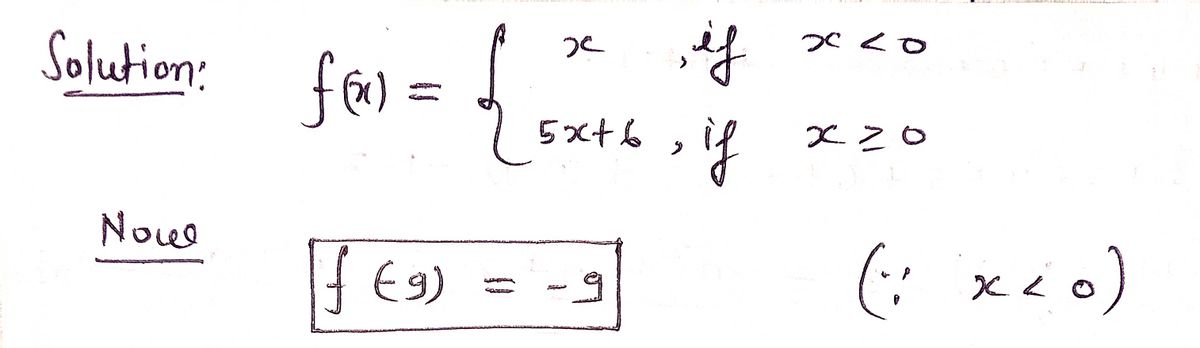 Solution: f(x) = { x , if x < 0
5x+6 , if x ≥ 0
Now
f(-9) = -9 (∵ x < 0)